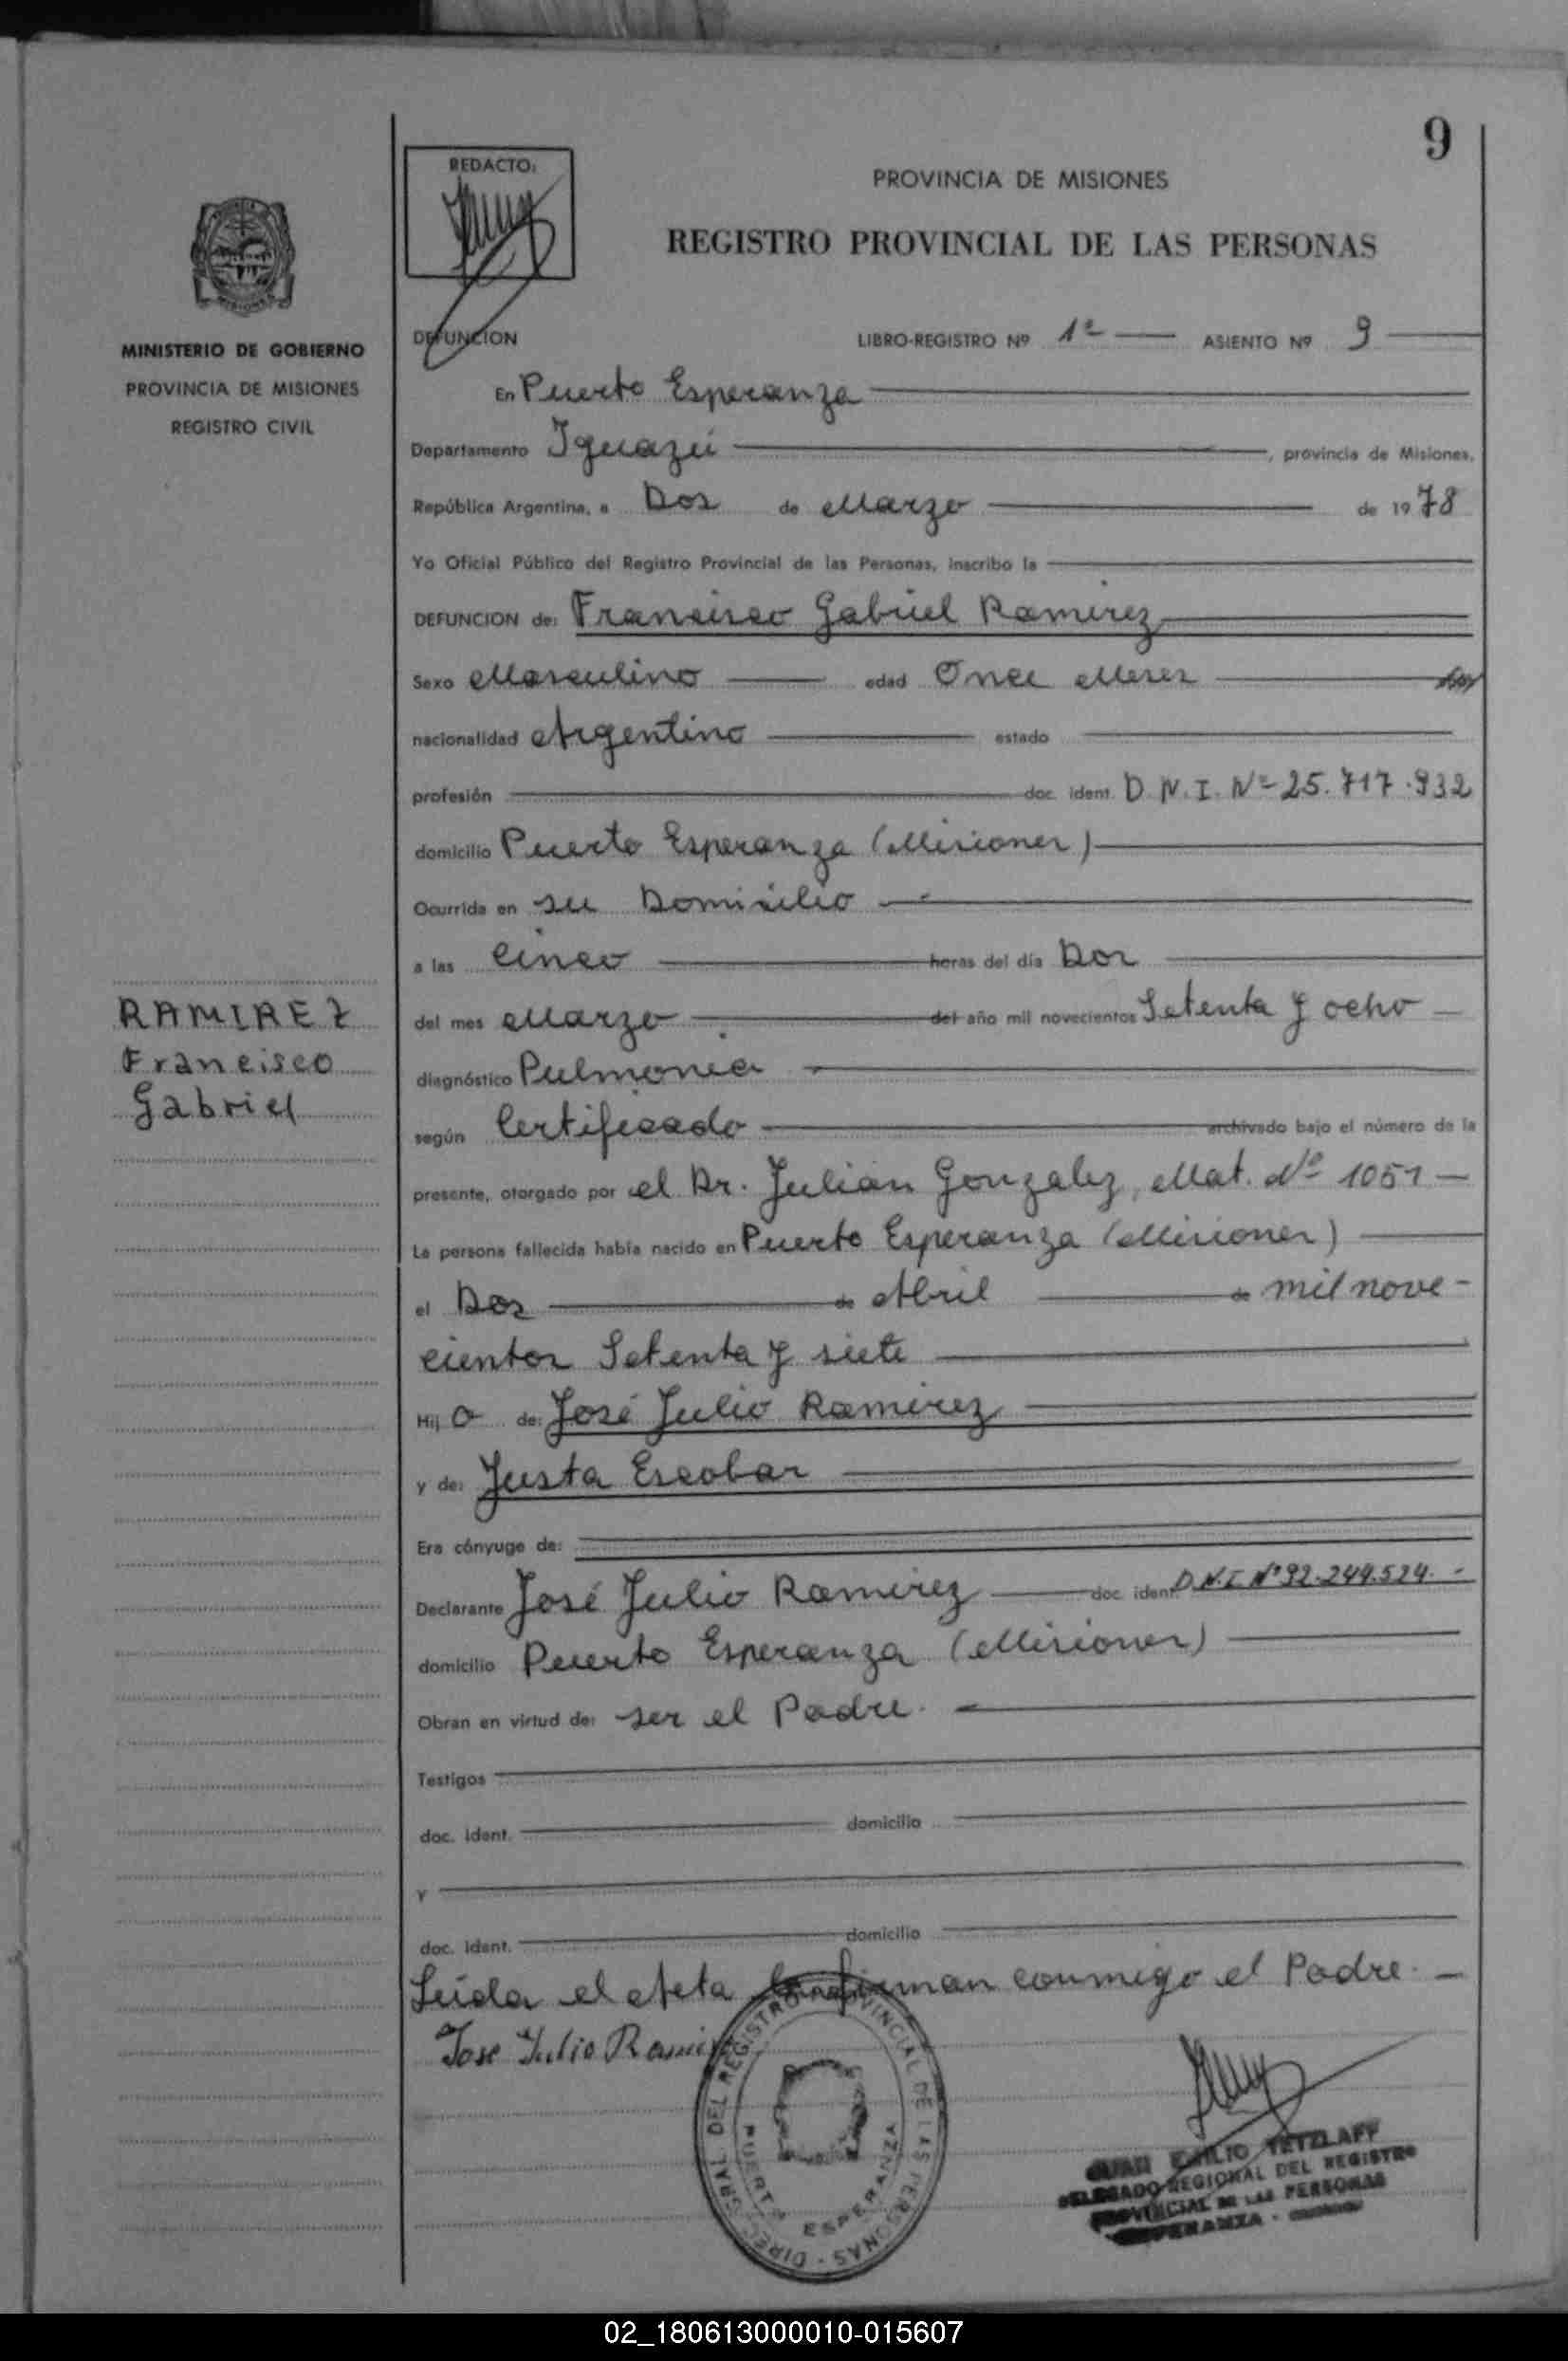 9
REDACTO:
PROVINCIA DE MISIONES
REGISTRO PROVINCIAL DE LAS PERSONAS
MINISTERIO DE GOBIERNO
PROVINCIA DE MISIONES
REGISTRO CIVIL
DEFUNCION LIBRO-REGISTRO Nº 1º ASIENTO Nº 9
En Puerto Esperanza
Departamento Iguazú, provincia de Misiones,
República Argentina, a Dos de Marzo de 1978
Yo Oficial Público del Registro Provincial de las Personas, inscribo la
DEFUNCION de: Francisco Gabriel Ramirez
Sexo Masculino edad Once Meses
nacionalidad Argentino estado
profesión doc. ident. D.N.I. Nº 25.717.932
domicilio Puerto Esperanza (Misiones)
Ocurrida en su Domicilio
a las Cinco horas del día Dos
del mes Marzo del año mil novecientos Setenta y ocho
diagnóstico Pulmonia
según Certificado archivado bajo el número de la
presente, otorgado por el Dr. Julián Gonzalez, Mat. Nº 1051
La persona fallecida había nacido en Puerto Esperanza (Misiones)
el Dos de Abril de mil nove-
cientos Setenta y siete
Hij o de: José Julio Ramirez
y de: Justa Escobar
Era cónyuge de:
Declarante José Julio Ramirez doc. ident. D.N.I. Nº 92.249.524.-
domicilio Puerto Esperanza (Misiones)
Obran en virtud de: ser el Padre.
Testigos
doc. ident. domicilio
y
doc. ident. domicilio
Leída el Acta la firman conmigo el Padre.
Jose Julio Ramirez
RAMIREZ
Francisco
Gabriel
DIREC. GRAL. DEL REGISTRO PROVINCIAL DE LAS PERSONAS
PUERTO ESPERANZA
JUAN EMILIO TETZLAFF
DELEGADO REGIONAL DEL REGISTRO
PROVINCIAL DE LAS PERSONAS
ESPERANZA
02_180613000010-015607